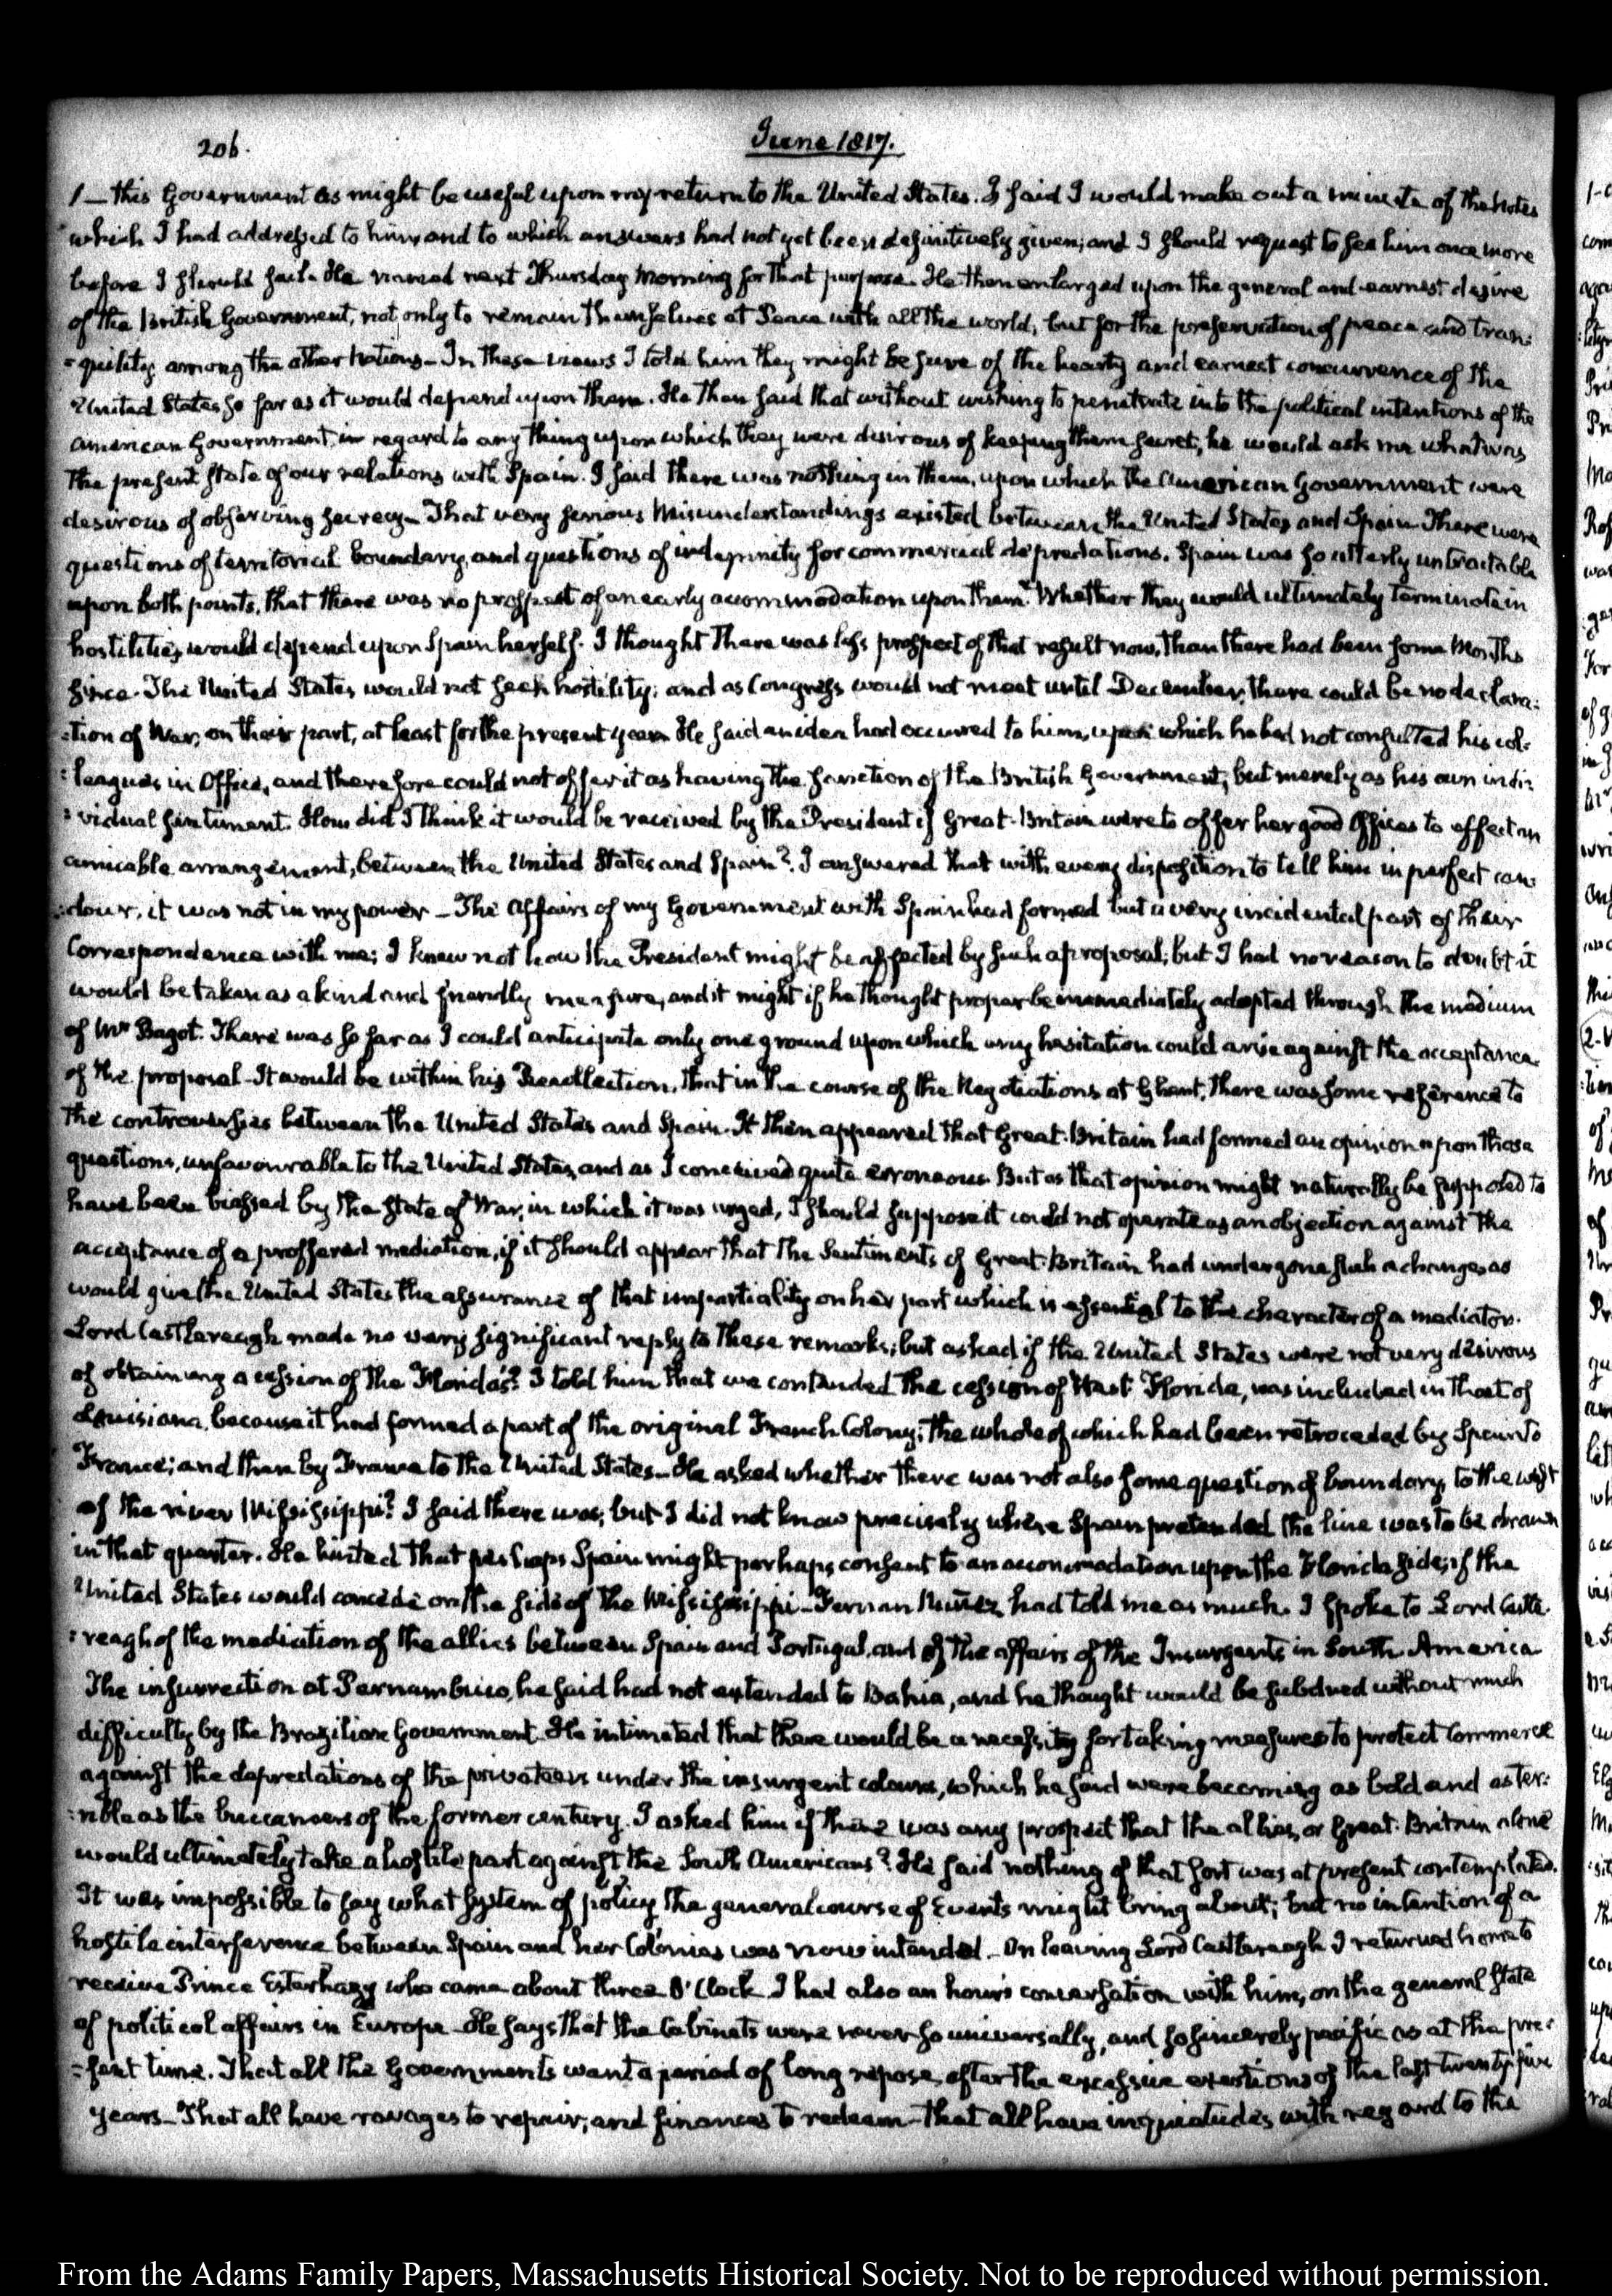 206.
June 1817.
1 — this Government as might be useful upon my return to the United States. I said I would make out a minute of the Notes
which I had addressed to him, and to which answers had not yet been definitively given; and I should request to see him once more
before I should sail. He named next Thursday Morning for that purpose. He then enlarged upon the general and earnest desire
of the British Government, not only to remain themselves at Peace with all the world, but for the preservation of peace and tran:
:quility among the other Nations — In these views I told him they might be sure of the hearty and earnest concurrence of the
United States so far as it would depend upon them. He then said that without wishing to penetrate into the political intentions of the
American Government, in regard to any thing upon which they were desirous of keeping them secret, he would ask me what was
the present state of our relations with Spain. I said there was nothing in them, upon which the American Government were
desirous of observing secrecy — That very serious Misunderstandings existed between the United States and Spain. There were
questions of territorial boundary, and questions of indemnity for commercial depredations. Spain was so utterly untractable
upon both points, that there was no prospect of an early accommodation upon them. Whether they would ultimately terminate in
hostilities, would depend upon Spain herself. I thought there was less prospect of that result now, than there had been some Months
since. The United States would not seek hostility; and as Congress would not meet until December, there could be no declara:
:tion of War, on their part, at least for the present year. He said an idea had occurred to him, upon which he had not consulted his col:
:leagues in Office, and therefore could not offer it as having the sanction of the British Government, but merely as his own indi:
:vidual sentiment. How did I think it would be received by the President if Great-Britain were to offer her good Offices to effect an
amicable arrangement, between the United States and Spain? I answered that with every disposition to tell him in perfect can:
:dour, it was not in my power — The affairs of my Government with Spain had formed but a very incidental part of their
Correspondence with me; I knew not how the President might be affected by such a proposal; but I had no reason to doubt it
would be taken as a kind and friendly measure, and it might if he thought proper be immediately adopted through the medium
of Mr Bagot. There was so far as I could anticipate only one ground upon which any hesitation could arise against the acceptance
of the proposal — It would be within his Recollection, that in the course of the Negotiations at Ghent, there was some reference to
the controversies between the United States and Spain. It then appeared that Great-Britain had formed an opinion upon those
questions, unfavourable to the United States, and as I conceived quite erroneous. But as that opinion might naturally be supposed to
have been biassed by the state of War, in which it was urged, I should suppose it could not operate as an objection against the
acceptance of a proffered mediation, if it should appear that the Sentiments of Great-Britain had undergone such a change, as
would give the United States the assurance of that impartiality on her part which is essential to the character of a mediator.
Lord Castlereagh made no very significant reply to these remarks; but asked if the United States were not very desirous
of obtaining a cession of the Florida's? I told him that we contended the cession of West Florida, was included in that of
Louisiana, because it had formed a part of the original French Colony; the whole of which had been retroceded by Spain to
France; and then by France to the United States — He asked whether there was not also some question of boundary, to the west
of the river Mississippi? I said there was; but I did not know precisely where Spain pretended the line was to be drawn
in that quarter. He hinted that perhaps Spain might perhaps consent to an accommodation upon the Florida side, if the
United States would concede on the side of the Mississippi — Fernan Nuñez had told me as much. I spoke to Lord Castle:
:reagh of the mediation of the allies between Spain and Portugal, and of the affairs of the Insurgents in South America
The insurrection at Pernambuco, he said had not extended to Bahia, and he thought would be subdued without much
difficulty by the Brazilian Government. He intimated that there would be a necessity for taking measures to protect Commerce
against the depredations of the privateers under the insurgent colours, which he said were becoming as bold and as ter:
:rible as the buccaneers of the former century. I asked him if there was any prospect that the allies, or Great-Britain alone
would ultimately take a hostile part against the South Americans? He said nothing of that sort was at present contemplated.
It was impossible to say what system of policy the general course of Events might bring about; but no intention of a
hostile interference between Spain and her Colonies was now intended — On leaving Lord Castlereagh I returned home to
receive Prince Esterhazy who came about three O'Clock. I had also an hour's conversation with him, on the general state
of political affairs in Europe — He says that the Cabinets were never so universally, and so sincerely pacific as at the pre:
:sent time. That all the Governments want a period of long repose, after the excessive exertions of the last twenty five
years — That all have ravages to repair, and finances to redeem — that all have inquietudes with regard to the
From the Adams Family Papers, Massachusetts Historical Society. Not to be reproduced without permission.